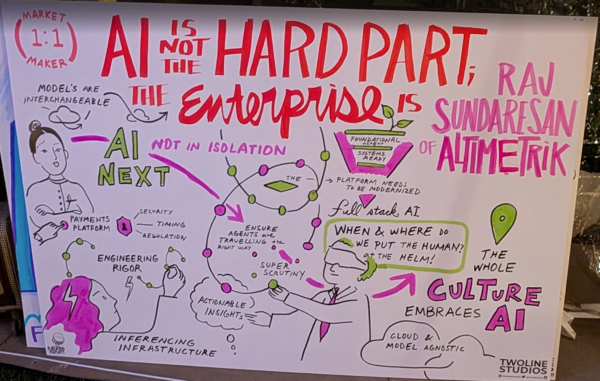 MARKET
1:1
MAKER
AI IS NOT THE HARD PART;
THE Enterprise IS
RAJ
SUNDARESAN
OF ALTIMETRIK
MODEL'S ARE
INTERCHANGEABLE
AI
NEXT
NOT IN ISOLATION
FOUNDATIONAL
SYSTEMS
READY
THE
PLATFORM NEEDS
TO BE MODERNIZED
full stack AI
PAYMENTS
PLATFORM
SECURITY
TIMING
REGULATION
ENSURE
AGENTS are
TRAVELLING the
RIGHT WAY
WHEN & WHERE DO
WE PUT THE HUMAN?
at THE HELM!
ENGINEERING
RIGOR
SUPER
SCRUTINY
ACTIONABLE
INSIGHTS
THE
WHOLE
CULTURE
EMBRACES AI
INFERENCING
INFRASTRUCTURE
CLOUD &
MODEL AGNOSTIC
TWOLINE
STUDIOS